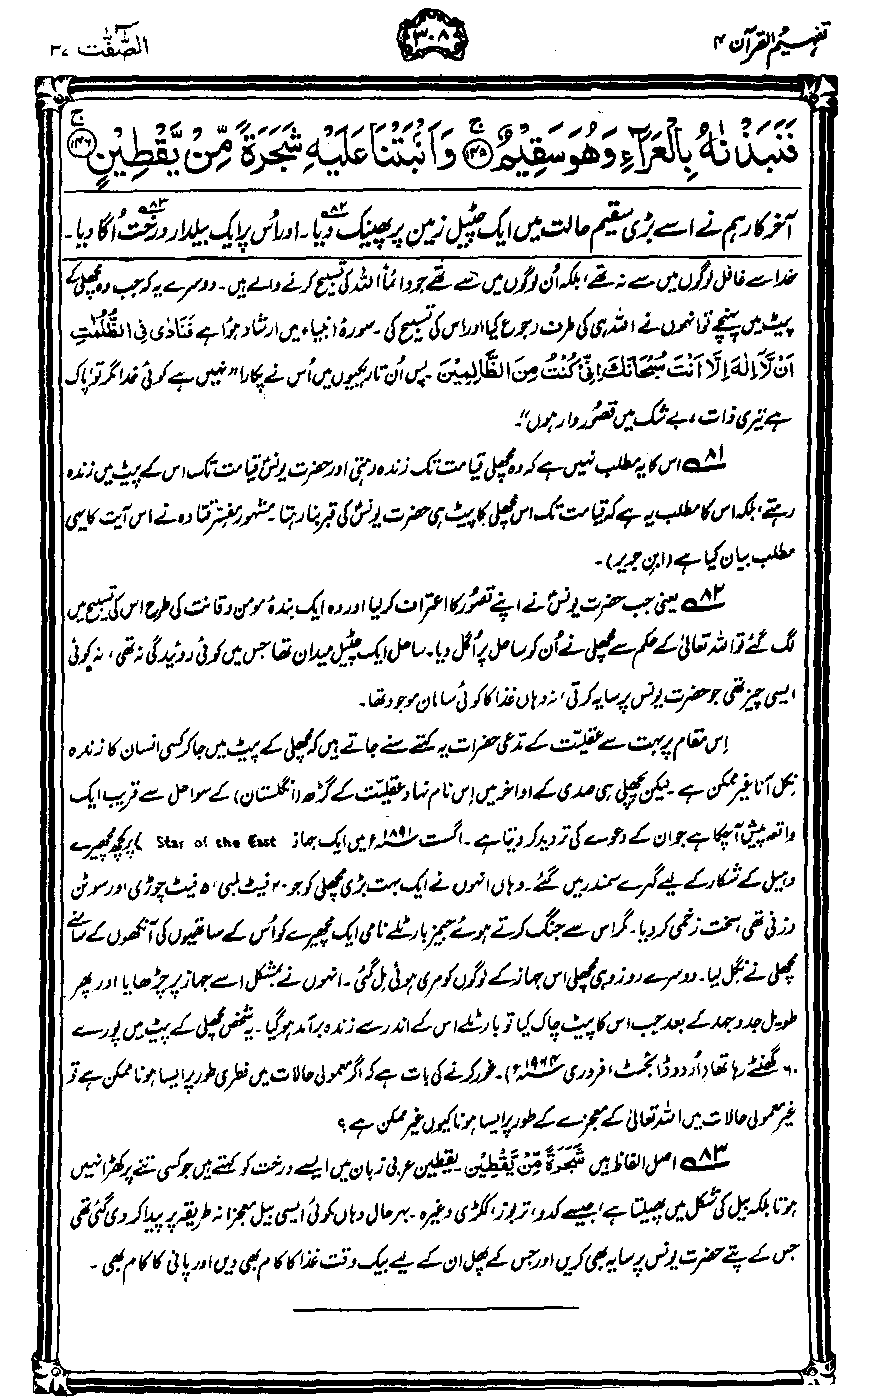 تفہیم القرآن ۴
۳۰۸
الصّٰٓفّٰت ۳۷
فَنَبَذْنٰهُ بِالْعَرَآءِ وَهُوَ سَقِيْمٌ ﴿۱۴۵﴾ۚ وَاَنْۢبَتْنَا عَلَيْهِ شَجَرَةً مِّنْ يَّقْطِيْنٍ ﴿۱۴۶﴾ۚ
آخرکار ہم نے اسے بڑی سقیم حالت میں ایک چٹیل زمین پر پھینک دیا۸۲۔ اور اُس پر ایک بیلدار درخت۸۳ اُگا دیا۔
خدا سے غافل لوگوں میں سے نہ تھے، بلکہ اُن لوگوں میں سے تھے جو دائماً اللہ کی تسبیح کرنے والے ہیں۔ دوسرے یہ کہ جب وہ مچھلی کے
پیٹ میں پہنچے تو انہوں نے اللہ ہی کی طرف رجوع کیا اور اس کی تسبیح کی۔ سورۂ انبیاء میں ارشاد ہوا ہے فَنَادٰى فِى الظُّلُمٰتِ
اَنْ لَّآ اِلٰهَ اِلَّآ اَنْتَ سُبْحَانَكَ اِنِّىْ كُنْتُ مِنَ الظَّالِمِيْنَ۔ پس اُن تاریکیوں میں اُس نے پکارا ”نہیں ہے کوئی خدا مگر تُو، پاک
ہے تیری ذات، بے شک میں قصُور وار ہوں“۔
۸۱ اس کا یہ مطلب نہیں ہے کہ وہ مچھلی قیامت تک زندہ رہتی اور حضرت یونسؑ قیامت تک اس کے پیٹ میں زندہ
رہتے، بلکہ اس کا مطلب یہ ہے کہ قیامت تک اس مچھلی کا پیٹ ہی حضرت یونسؑ کی قبر بنا رہتا۔ مشہور مفسّر قتادہ نے اس آیت کا یہی
مطلب بیان کیا ہے (ابن جریر)۔
۸۲ یعنی جب حضرت یونسؑ نے اپنے قصُور کا اعتراف کر لیا اور وہ ایک بندۂ مومن و قانت کی طرح اس کی تسبیح میں
لگ گئے تو اللہ تعالیٰ کے حکم سے مچھلی نے اُن کو ساحل پر اُگل دیا۔ ساحل ایک چٹیل میدان تھا جس میں کوئی روئیدگی نہ تھی، نہ کوئی
ایسی چیز تھی جو حضرت یونس پر سایہ کرتی، نہ وہاں غذا کا کوئی سامان موجود تھا۔
اِس مقام پر بہت سے عقلیّت کے مدّعی حضرات یہ کہتے سُنے جاتے ہیں کہ مچھلی کے پیٹ میں جا کر کسی انسان کا زندہ
نِکل آنا غیر ممکن ہے۔ لیکن پچھلی ہی صدی کے اواخر میں اِس نام نہاد عقلیّت کے گڑھ (انگلستان) کے سواحل سے قریب ایک
واقعہ پیش آچکا ہے جو ان کے دعوے کی تردید کر دیتا ہے۔ اگست ۱۸۹۱ء میں ایک جہاز Star of the East پر کچھ مچھیرے
وہیل کے شکار کے لیے گہرے سمندر میں گئے۔ وہاں انہوں نے ایک بہت بڑی مچھلی کو جو ۲۰ فیٹ لمبی، ۵ فیٹ چوڑی اور سو ٹن
وزنی تھی، سخت زخمی کر دیا۔ مگر اس سے جنگ کرتے ہوئے جیمز بارٹلے نامی ایک مچھیرے کو اُس کے ساتھیوں کی آنکھوں کے سامنے
مچھلی نے نِگل لیا۔ دوسرے روز وہی مچھلی اس جہاز کے لوگوں کو مری ہوئی مِل گئی۔ انہوں نے بمشکل اسے جہاز پر چڑھایا اور پھر
طویل جدوجہد کے بعد جب اس کا پیٹ چاک کیا تو بارٹلے اس کے اندر سے زندہ برآمد ہو گیا۔ یہ شخص مچھلی کے پیٹ میں پورے
۶۰ گھنٹے رہا تھا (اُردو ڈائجسٹ، فروری ۱۹۶۴ء)۔ غور کرنے کی بات ہے کہ اگر معمولی حالات میں فطری طور پر ایسا ہونا ممکن ہے تو
غیر معمولی حالات میں اللہ تعالیٰ کے معجزے کے طور پر ایسا ہونا کیوں غیر ممکن ہے؟
۸۳ اصل الفاظ ہیں شَجَرَةً مِّنْ يَّقْطِيْنٍ۔ یقطین عربی زبان میں ایسے درخت کو کہتے ہیں جو کسی تنے پر کھڑا نہیں
ہوتا بلکہ بیل کی شکل میں پھیلتا ہے، جیسے کدو، تربوز، ککڑی وغیرہ۔ بہرحال وہاں کوئی ایسی بیل معجزانہ طریقہ پر پیدا کر دی گئی تھی
جس کے پتّے حضرت یونس پر سایہ بھی کریں اور جس کے پھل ان کے لیے بیک وقت غذا کا کام بھی دیں اور پانی کا کام بھی۔